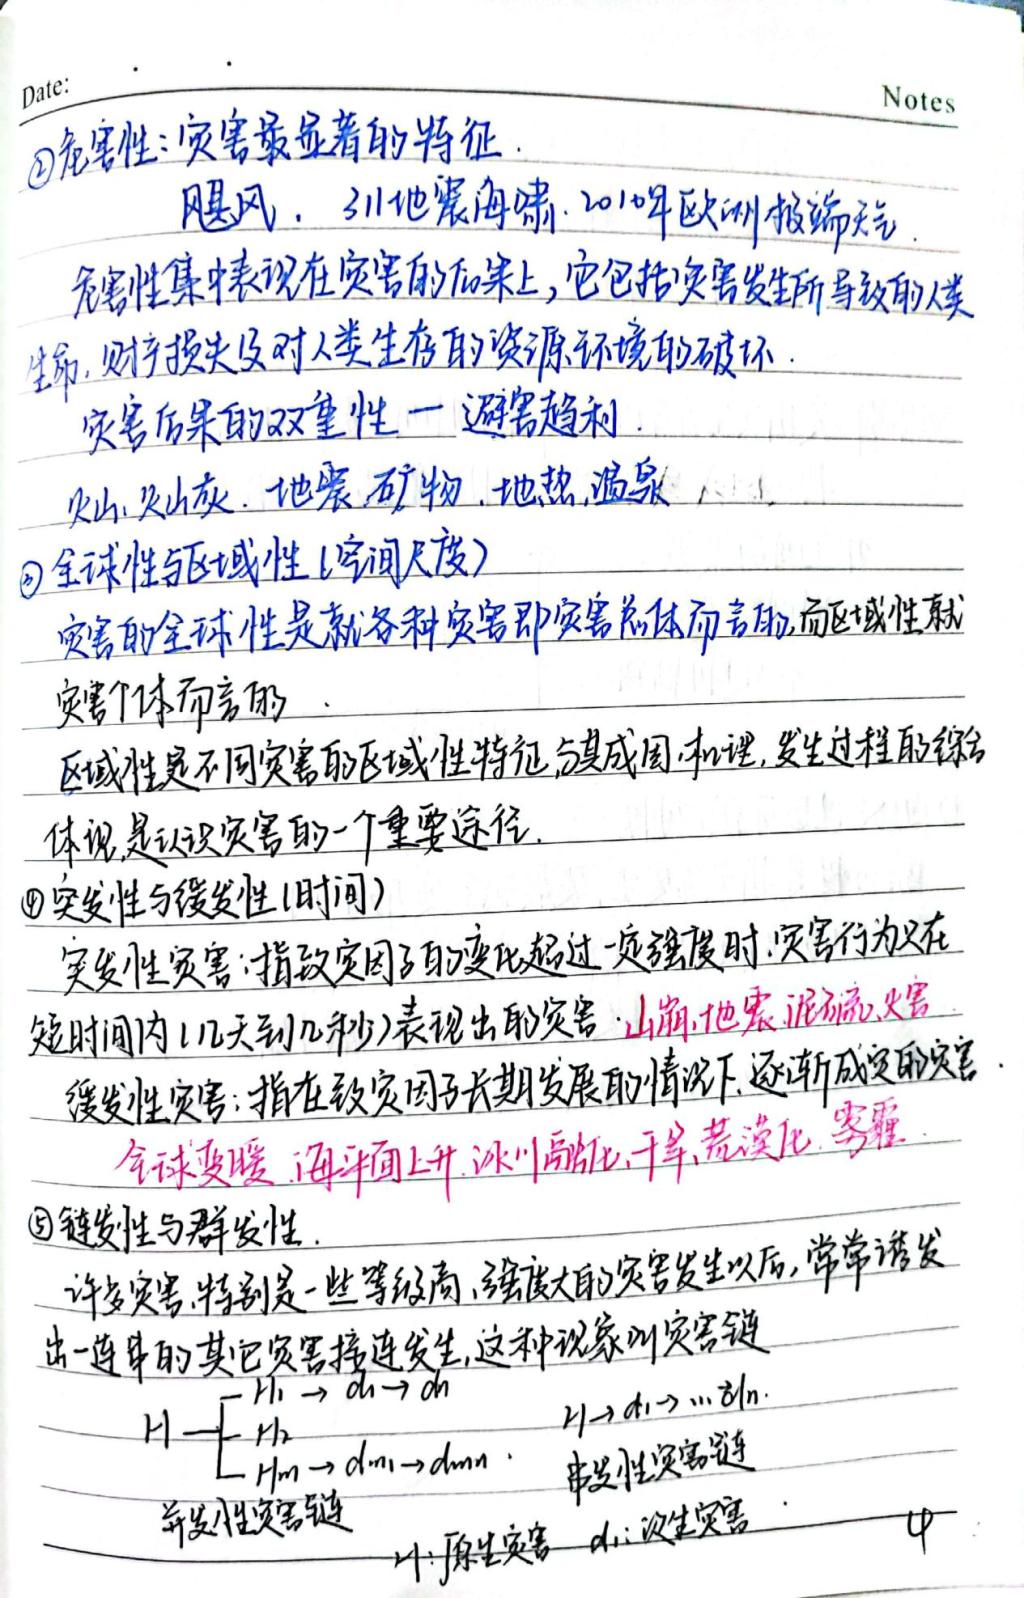 Date:
Notes
②危害性:灾害最显著的特征.
飓风. 311地震海啸. 2010年欧洲极端天气.
危害性集中表现在灾害的后果上,它包括灾害发生所导致的人类
生命,财产损失及对人类生存的资源环境的破坏.
灾害后果的双重性一避害趋利.
火山,火山灰. 地震,矿物,地热,温泉
③全球性与区域性(空间尺度)
灾害的全球性是就各种灾害即灾害总体而言的,而区域性就
灾害个体而言的.
区域性是不同灾害的区域性特征,与其成因,机理,发生过程的综合
体现,是认识灾害的一个重要途径.
④突发性与缓发性(时间)
突发性灾害:指致灾因子的变化超过一定强度时,灾害行为只在
短时间内(几天到几秒)表现出的灾害.山崩,地震,泥石流,火害
缓发性灾害:指在致灾因子长期发展的情况下,逐渐成灾的灾害.
全球变暖,海平面上升,冰川融化,干旱,荒漠化.雾霾
⑤链发性与群发性.
许多灾害,特别是一些等级高、强度大的灾害发生以后,常常诱发
出一连串的其它灾害接连发生,这种现象叫灾害链
H1→d1→dn
H H2 H→d1→...dn.
Hm→dm1→dmn.
串发性灾害链
并发性灾害链
H:原生灾害 d1:次生灾害
4